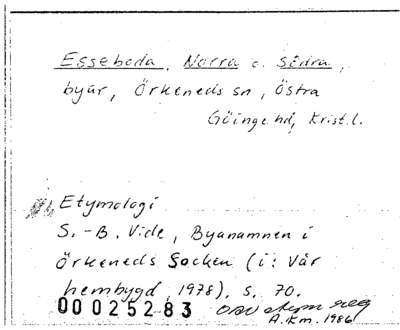 Esseboda, Norra o. Södra,
byar, Örkeneds sn, Östra
Göinge hd, Krist. l.
Etymologi
S.-B. Vide, Byanamnen i
Örkeneds Socken (i: Vår
hembygd, 1978), s. 70.
00025283
A. Km. 1986